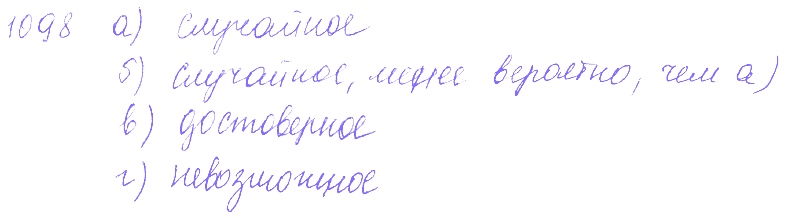 1098 а) случайное
б) случайное, менее вероятно, чем а)
в) достоверное
г) невозможное